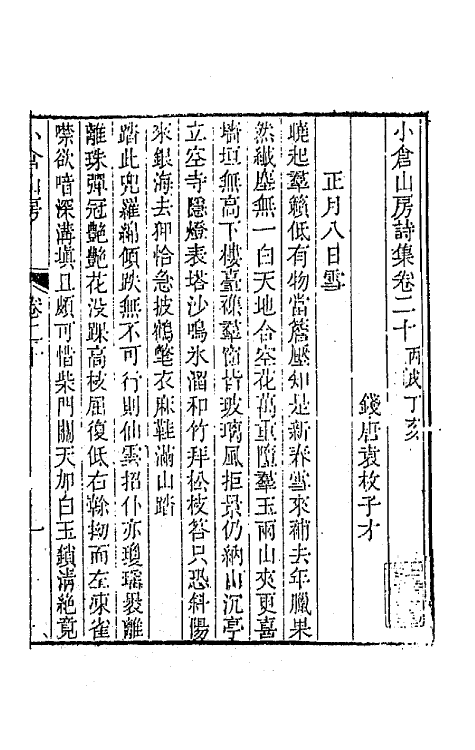 小倉山房詩集卷二十丙戌丁亥
錢唐袁枚子才
正月八日雪
曉起羣籟低有物當簷壓知是新春雪來補去年臘果
然纖塵無一白天地合空花萬重墮羣玉兩山夾更喜
墻垣無高下樓臺襍羣窗皆玻璃風拒景仍納山沉亭
立空寺隱燈表塔沙鳴氷溜和竹拜松枝答只恐斜陽
來銀海去狎恰急披鶴氅衣麻鞋滿山踏
踏此兜羅綿傾跌無不可行則仙雲招仆亦瓊瑤裂離
離珠彈冠艷艷花没踝高枝屈復低右骖拗而左凍雀
噤欲喑深溝填且頗可惜柴門關天加白玉鎖溝絶竟
小倉山房
卷二十
一